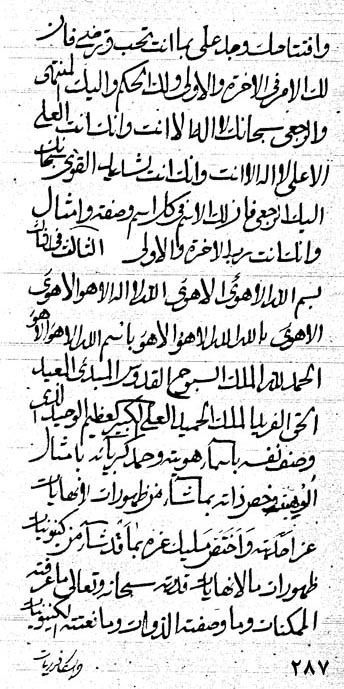 وافتتاحك وجد علی بما انت تحب وترضی فان
لك الامر فی الاخرة والاولی ولك الحكم والیك المنتهی
والرجعی سبحانك لا اله الا انت وانك انت العلی
الاعلی لا اله الا انت وانك انت شدید القوی سبحانك
الیك الرجعی فان لك الاسم فی كل اسم وصفة وامثال
وانك انت رب الاخرة والاولی الثالث فی
بسم الله الاهوی الاهوی الله لا اله الا هو الاهوی
الاهوی بالله الله الاهو الاهو باسم الله الاهو الاهو
الحمد لله الملك السبوح القدوس المبدئ المعید
الحی الفرید الملك الحمید العلی الكبیر العظیم الوحید الذی
وصف نفسه باسماء هویته وحمد كبریائه بامثال
الوهیته خص ذاته بماشاء من ظهورات لانهایات
عز احدیته واختص ملیك عزه بما قد شاء من كینونیات
ظهورات مالانهایات قدرته سبحانه وتعالی ماعرفته
الممكنات وما وصفته الذوات وما نعتته الكینونیات
٢٨٧